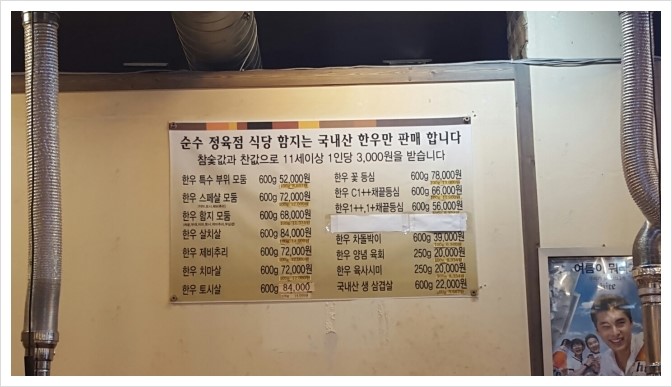 순수 정육점 식당 함지는 국내산 한우만 판매 합니다
참숯값과 찬값으로 11세이상 1인당 3,000원을 받습니다
한우 특수 부위 모둠 600g 52,000원
한우 스페샬 모둠 600g 72,000원
한우 함지 모둠 600g 68,000원
한우 살치살 600g 84,000원
한우 제비추리 600g 72,000원
한우 치마살 600g 72,000원
한우 토시살 600g 84,000
한우 꽃 등심 600g 78,000원
한우 C1++채끝등심 600g 66,000원
한우1++,1+채끝등심 600g 56,000원
한우 차돌박이 600g 39,000원
한우 양념 육회 250g 20,000원
한우 육사시미 250g 20,000원
국내산 생 삼겹살 600g 22,000원
여름이 뭐